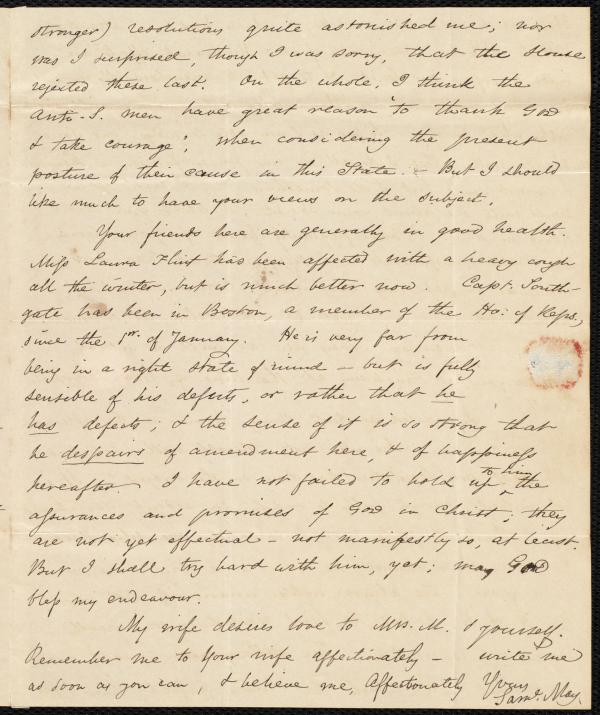 stronger) resolutions quite astonished me; nor
was I surprised, though I was sorry, that the House
rejected these last. On the whole, I think the
Anti-S. men have great reason "to thank God
& take courage", when considering the present
posture of their cause in this State. - But I should
like much to have your views on the subject.
Your friends here are generally in good health.
Miss Laura Flint has been affected with a heavy cough
all the winter, but is much better now. Capt. South-
gate has been in Boston, a member of the Ho: of Reps,
since the 1st. of January. He is very far from
being in a right state of mind - but is fully
sensible of his defects, or rather that he
has defects; & the sense of it is so strong that
he despairs of amendment here, & of happiness
hereafter. I have not failed to hold up to him the
assurances and promises of God in Christ; they
are not yet effectual - not manifestly so, at least.
But I shall try hard with him, yet; may God
bless my endeavour.
My wife desires love to Mrs. M. & yourself.
Remember me to your wife affectionately - write me
as soon as you can, & believe me, Affectionately Yours
Saml. May.